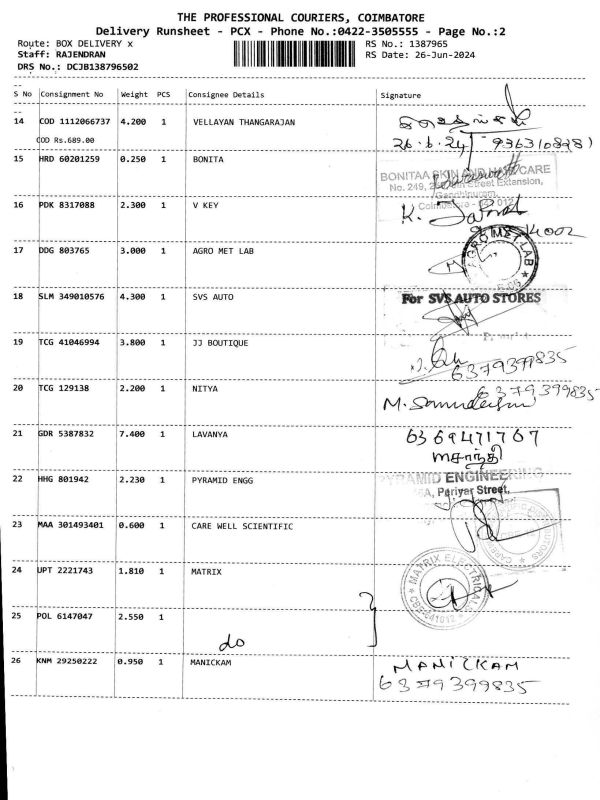 THE PROFESSIONAL COURIERS, COIMBATORE
Delivery Runsheet - PCX - Phone No.:0422-3505555 - Page No.:2
Route: BOX DELIVERY x RS No.: 1387965
Staff: RAJENDRAN RS Date: 26-Jun-2024
DRS No.: DCJB138796502
S No Consignment No Weight PCS Consignee Details Signature
14 COD 1112066737 4.200 1 VELLAYAN THANGARAJAN
COD Rs.689.00 26.6.24
15 HRD 60201259 0.250 1 BONITA
BONITAA SKIN AND HAIR CARE
No. 249, Street Extension,
Gandhipuram,
Coimbatore - 012
16 PDK 8317088 2.300 1 V KEY
K.
17 DDG 803765 3.000 1 AGRO MET LAB
AGRO MET LAB
18 SLM 349010576 4.300 1 SVS AUTO
For SVS AUTO STORES
19 TCG 41046994 3.800 1 JJ BOUTIQUE
6379399835
20 TCG 129138 2.200 1 NITYA
6379399835
M.
21 GDR 5387832 7.400 1 LAVANYA
6369471767
சாந்தி
22 HHG 801942 2.230 1 PYRAMID ENGG
PYRAMID ENGINEERING
Periyar Street,
23 MAA 301493401 0.600 1 CARE WELL SCIENTIFIC
24 UPT 2221743 1.810 1 MATRIX
MATRIX ELECTRICAL
CBE-641012
25 POL 6147047 2.550 1
do
26 KNM 29250222 0.950 1 MANICKAM
MANICKAM
6379399835